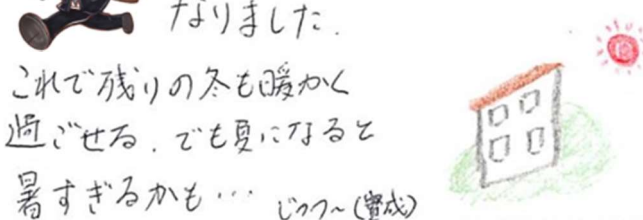 なりました.
これで残りの冬も暖かく
過ごせる.でも夏になると
暑すぎるかも…
じつつ〜(實成)